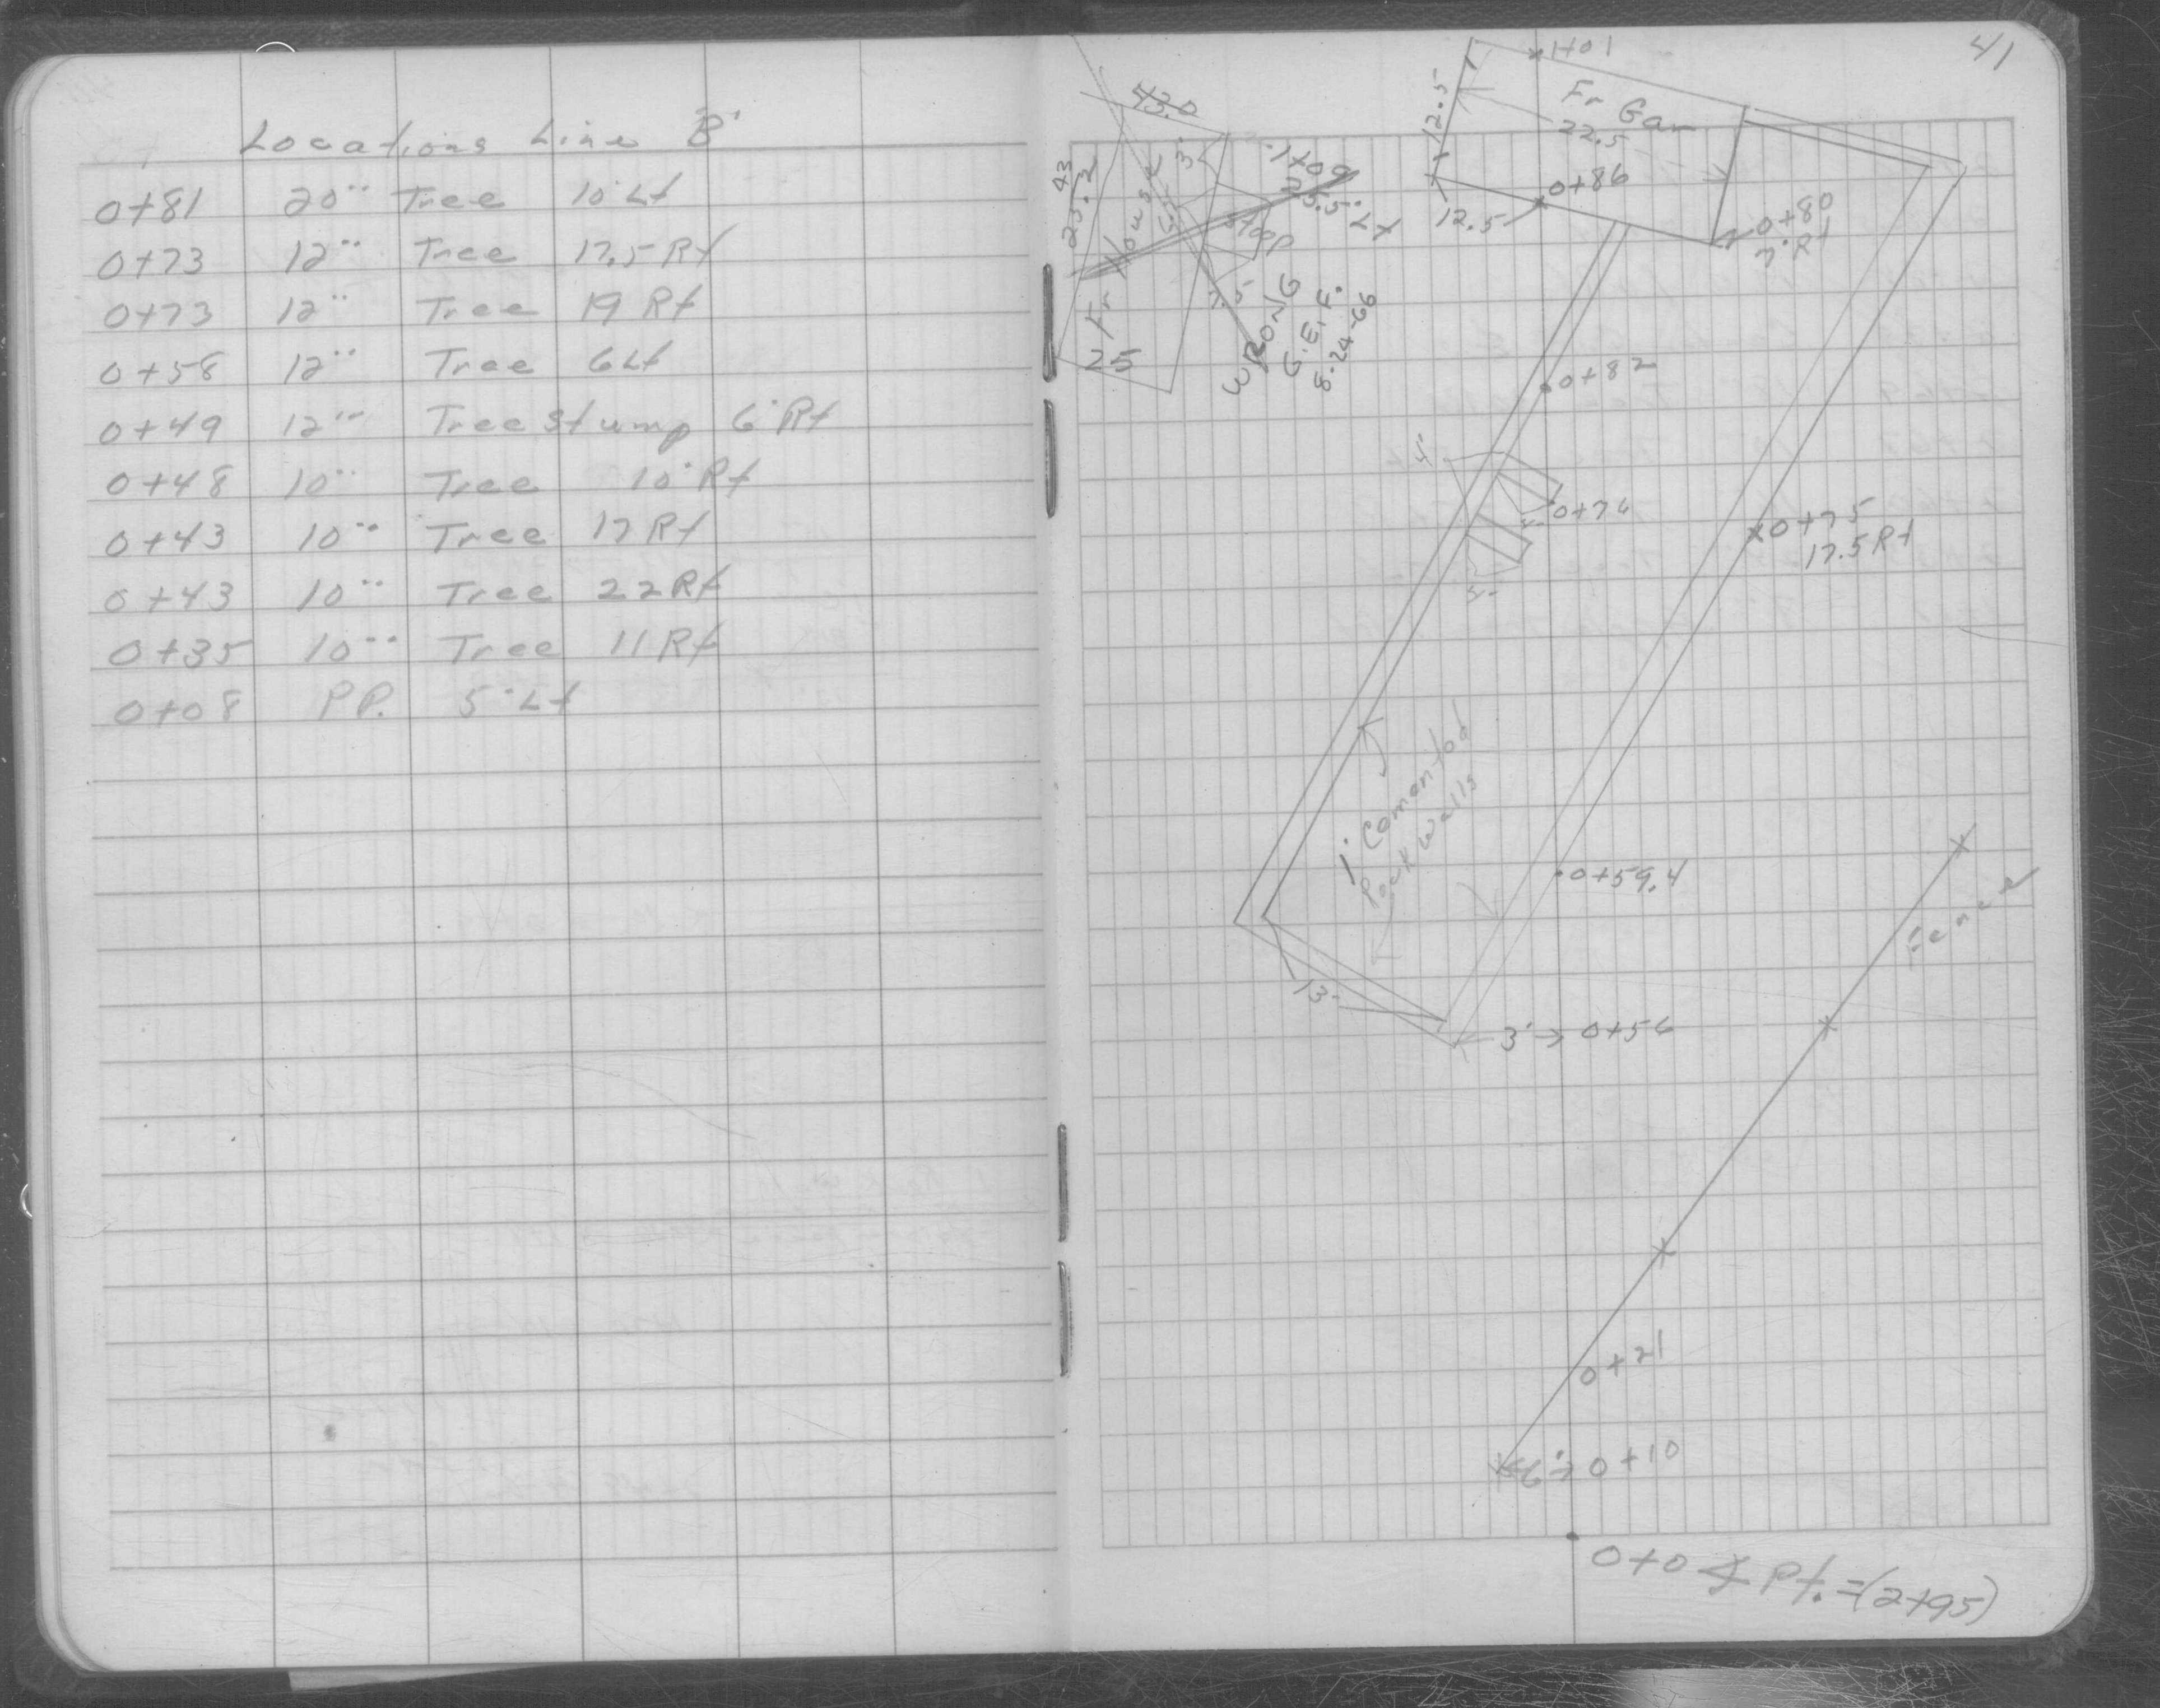 Locations Line B'
0+81 20" Tree 10' Lt
0+73 12" Tree 17.5 Rt
0+73 12" Tree 19 Rt
0+58 12" Tree 6 Lt
0+49 12" Tree Stump 6' Rt
0+48 10" Tree 10' Rt
0+43 10" Tree 17 Rt
0+43 10" Tree 22 Rt
0+35 10" Tree 11 Rt
0+08 P.P. 5' Lt
41
1+01
43.0
12.5
Fr Gar
22.5
3'
1+09
25.5' Lt
43
25.2
Fr House
Stoop
0+86
12.5
0+80
7' Rt
5'
25
WRONG
G.E.F.
8-24-66
0+82
4'
0+76
0+75
17.5 Rt
1' Cemented
Rock Walls
0+59.4
Fence
13'
3' → 0+56
0+21
6' → 0+10
0+0 ∡ Pt. = (2+95)